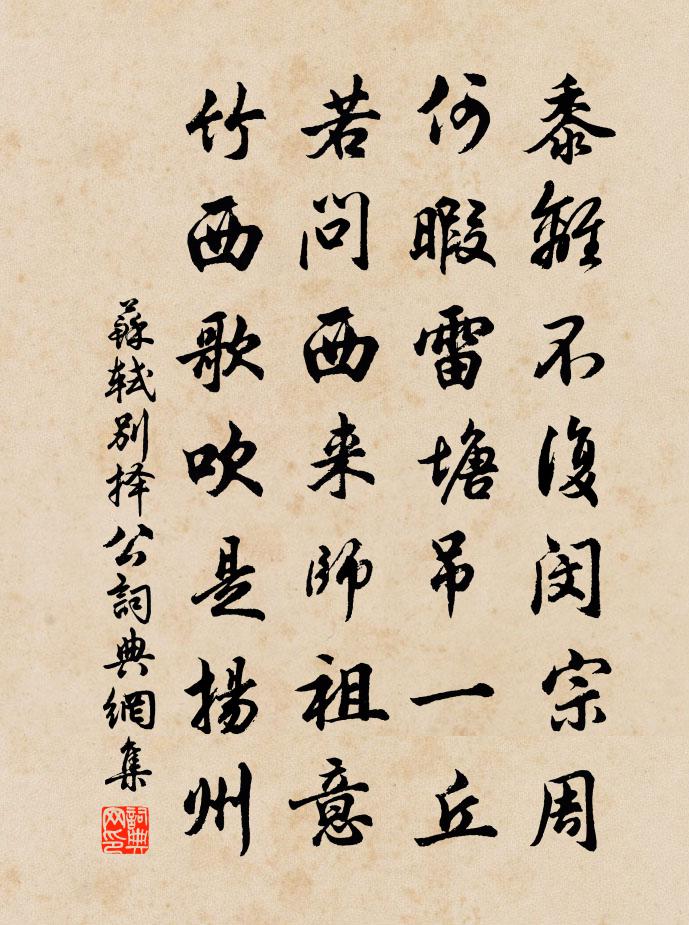 黍離不復閔宗周
何暇雷塘吊一丘
若問西来師祖意
竹西歌吹是揚州
蘇軾別择公詞典網集
詞典網印